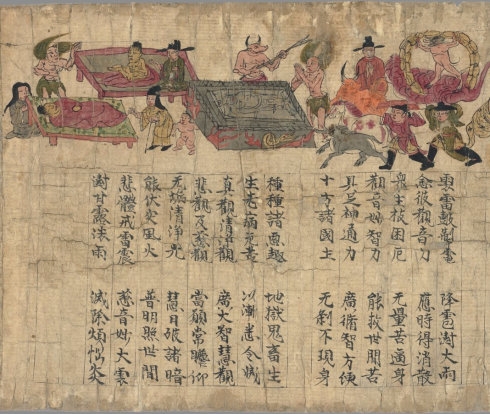 雲雷皷掣電 降雹澍大雨
念彼觀音力 應時得消散
眾生被困厄 无量苦逼身
觀音妙智力 能救世間苦
具足神通力 廣脩智方便
十方諸國土 无剎不現身
種種諸惡趣 地獄鬼畜生
生老病死苦 以漸悉令滅
真觀清淨觀 廣大智慧觀
悲觀及慈觀 當願常瞻仰
无垢清淨光 慧日破諸暗
能伏灾風火 普明照世間
悲體戒雷震 慈音妙大雲
澍甘露法雨 滅除煩惱炎